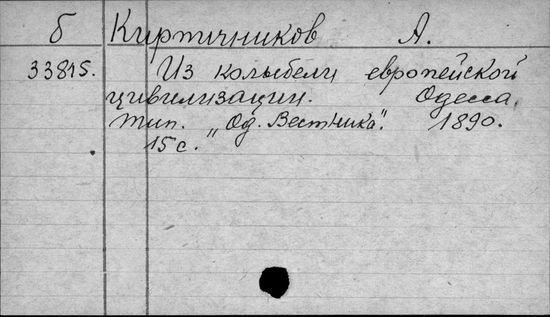 б Кирпичников А.
33815. Из колыбели европейской
цивилизации. Одесса,
тип. "Од. Вестника". 1890.
15 с.